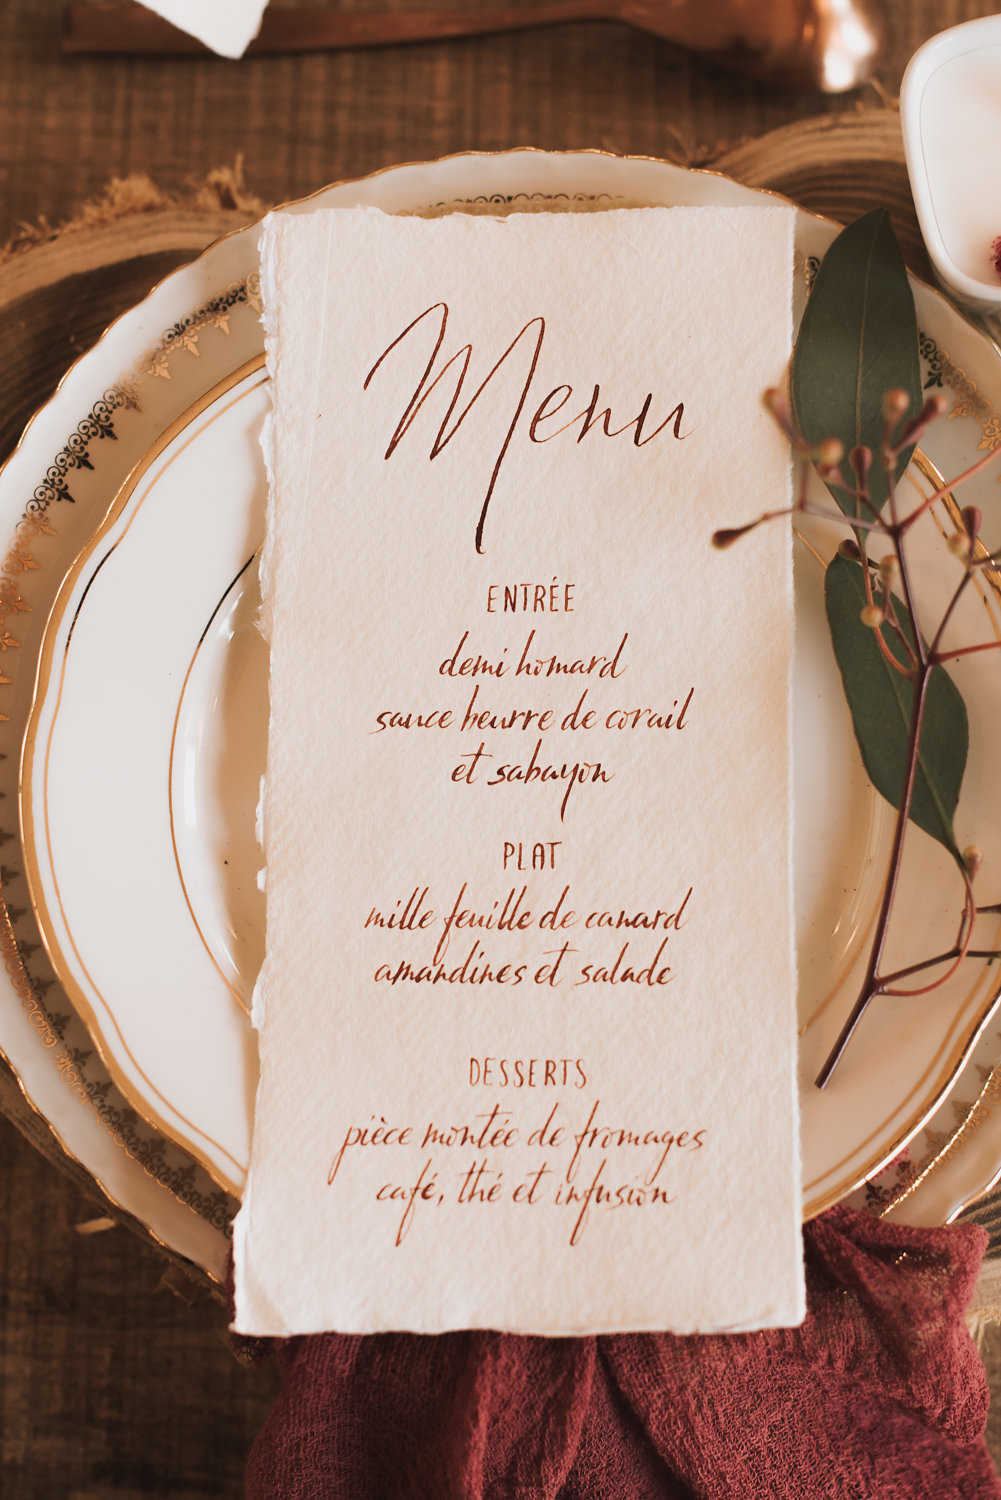 Menu
ENTRÉE
demi homard
sauce beurre de corail
et sabayon
PLAT
mille feuille de canard
amandines et salade
DESSERTS
pièce montée de fromages
café, thé et infusion